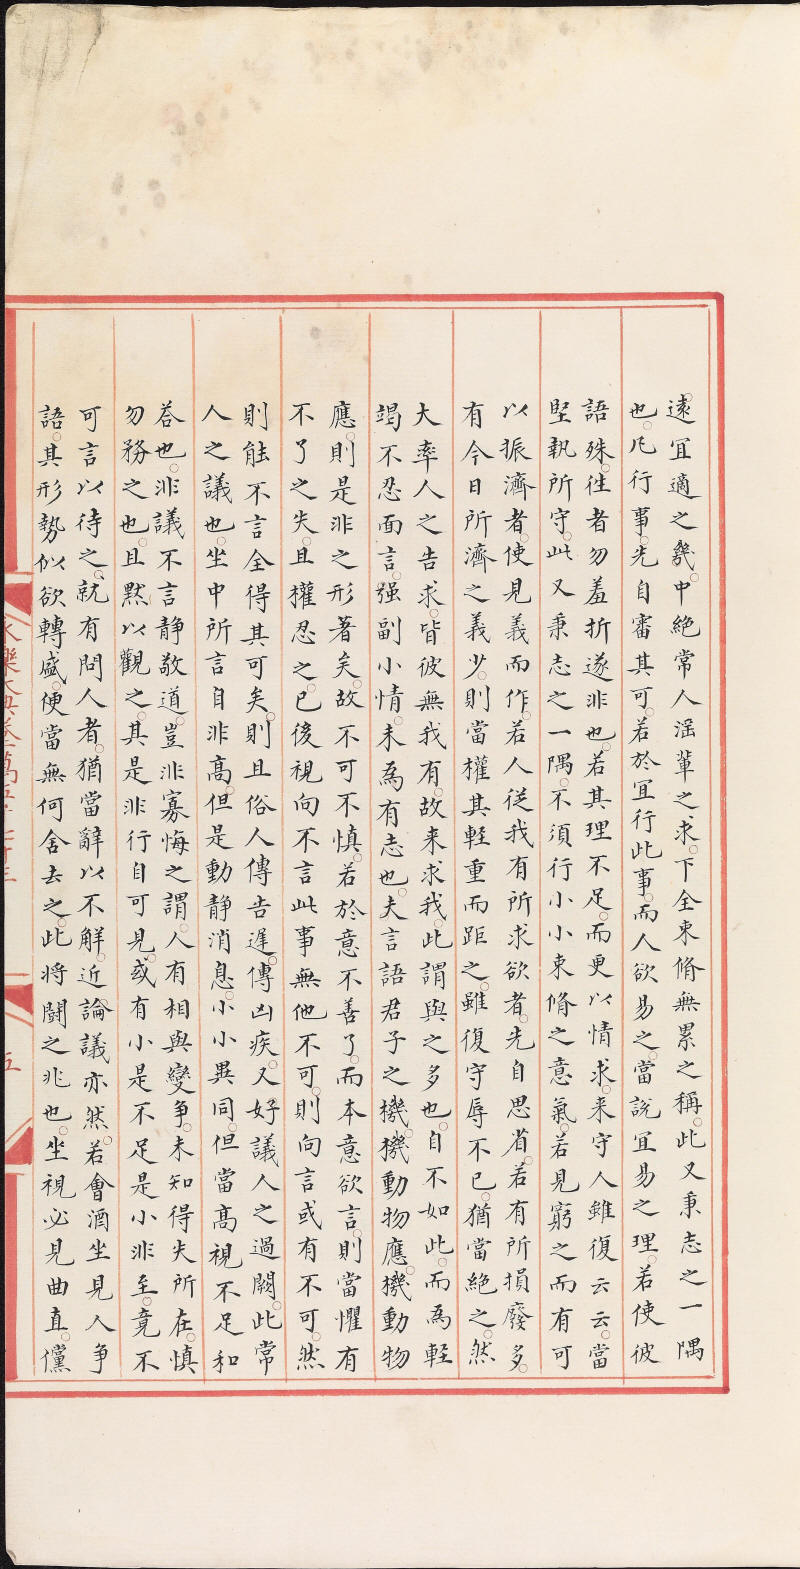 遠宜適之幾。中絶常人淫輩之求。下全束脩無累之稱。此又秉志之一隅
也。凡行事。先自審其可。若於宜行此事。而人欲易之。當說宜易之理。若使彼
語殊。徃者勿羞折遂非也。若其理不足。而更以情求。来守人雖復云云。當
堅執所守。此又秉志之一隅。不須行小小束脩之意氣。若見窮之而有可
以振濟者。使見義而作。若人從我有所求欲者。先自思省。若有所損廢多。
有今日所濟之義少。則當權其輕重而距之。雖復守辱不已。猶當絶之。然
大率人之告求。皆彼無我有。故来求我。此謂與之多也。自不如此。而為輕
竭不忍面言。强副小情。未為有志也。夫言語君子之機。機動物應。機動物
應。則是非之形著矣。故不可不慎。若於意不善了。而本意欲言。則當懼有
不了之失。且權忍之。已後視向不言此事無他不可。則向言或有不可。然
則能不言全得其可矣。則且俗人傳告遲。傳凶疾。又好議人之過闕。此常
人之議也。坐中所言自非高。但是動静消息。小小異同。但當高視不足和
荅也。非議不言静敬道。豈非寡悔之謂。人有相與變争。未知得失所在。慎
勿務之也。且黙以觀之。其是非行自可見。或有小是不足是小非至。竟不
可言以待之。就有問人者。猶當辭以不解。近論議亦然。若會酒坐見人争
語。其形勢似欲轉盛。便當無何舍去之。此将鬭之兆也。坐視必見曲直。儻
五